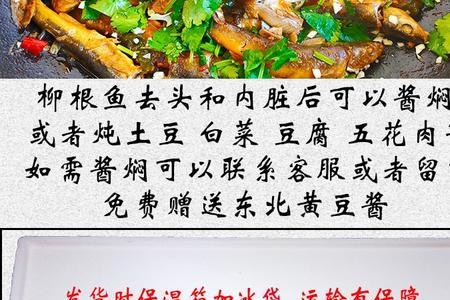 柳根鱼去头和内脏后可以酱焖
或者炖土豆 白菜 豆腐 五花肉
如需酱焖可以联系客服或者留
免费赠送东北黄豆酱
发货时保温箱加冰袋 运输有保障